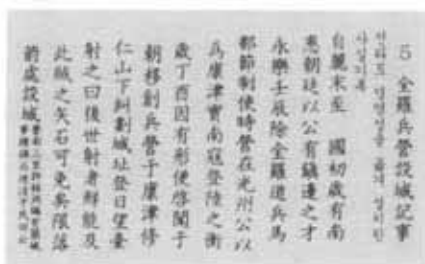 5 全羅兵營設城記事
自麗末至 國初歲有南
患朝廷以公有鎭邊之才
永樂壬辰除全羅道兵馬
都節制使時營在光州公以
爲康津實南寇登陸之衝
歲丁酉因有形便啓聞于
朝移創兵營于康津修
仁山下糾劃城址登日望臺
射之曰後世射者鮮能及
此賊之矢石可免矣限落
箭處設城